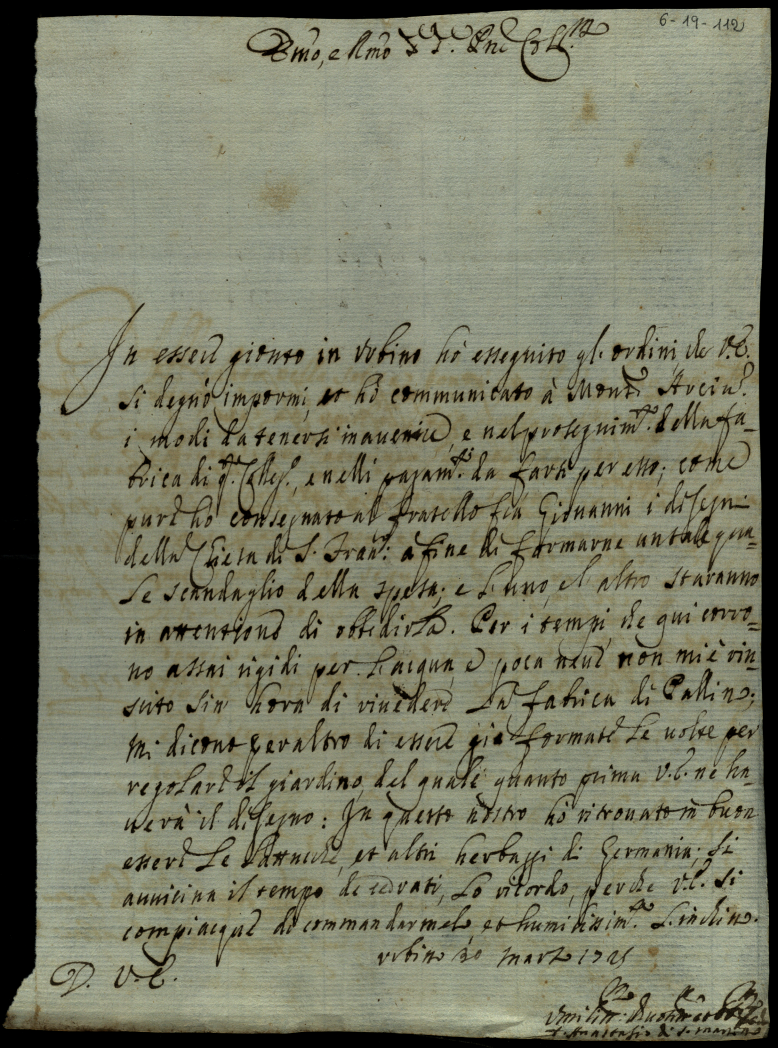 6-19-112
Emo, e Rmo
In essere gionto in Urbino hò esseguito gl. ordini che V.E.
si degnò impormi, et hò communicato à Arciu.
i modi da tenersi in auenire, e nel proseguim.to della fa-
brica di q.to, e nelli pagam.ti da farsi per esso; come
pure hò consegnato al fratello frà Giouanni i disegni
della Chiesa di S. Fran.co: à fine di formarne un tale qua-
le scandaglio della spesa; e l'uno, e l'altro staranno
in attentione di obbedirla. Per i tempi, che qui corro-
no assai rigidi per l'acqua, e poca neue non mi è riu-
scito sin hora di riuedere la fabrica di Pallino;
mi dicono per altro di essere già formate le uolte per
regolare il giardino, del quale quanto prima V.E. ne ha-
uerà il disegno: In questo nostro hò ritrouato in buon
essere le, et altri herbaggi di Germania; si
auuicina il tempo di, lo ricordo, perche V.E. si
compiacque di commandarmelo, et humilissim.te l'inchino.
Urbino 30 Marzo 1725
D. V. E.
Umiliss:
Anastasio di S.